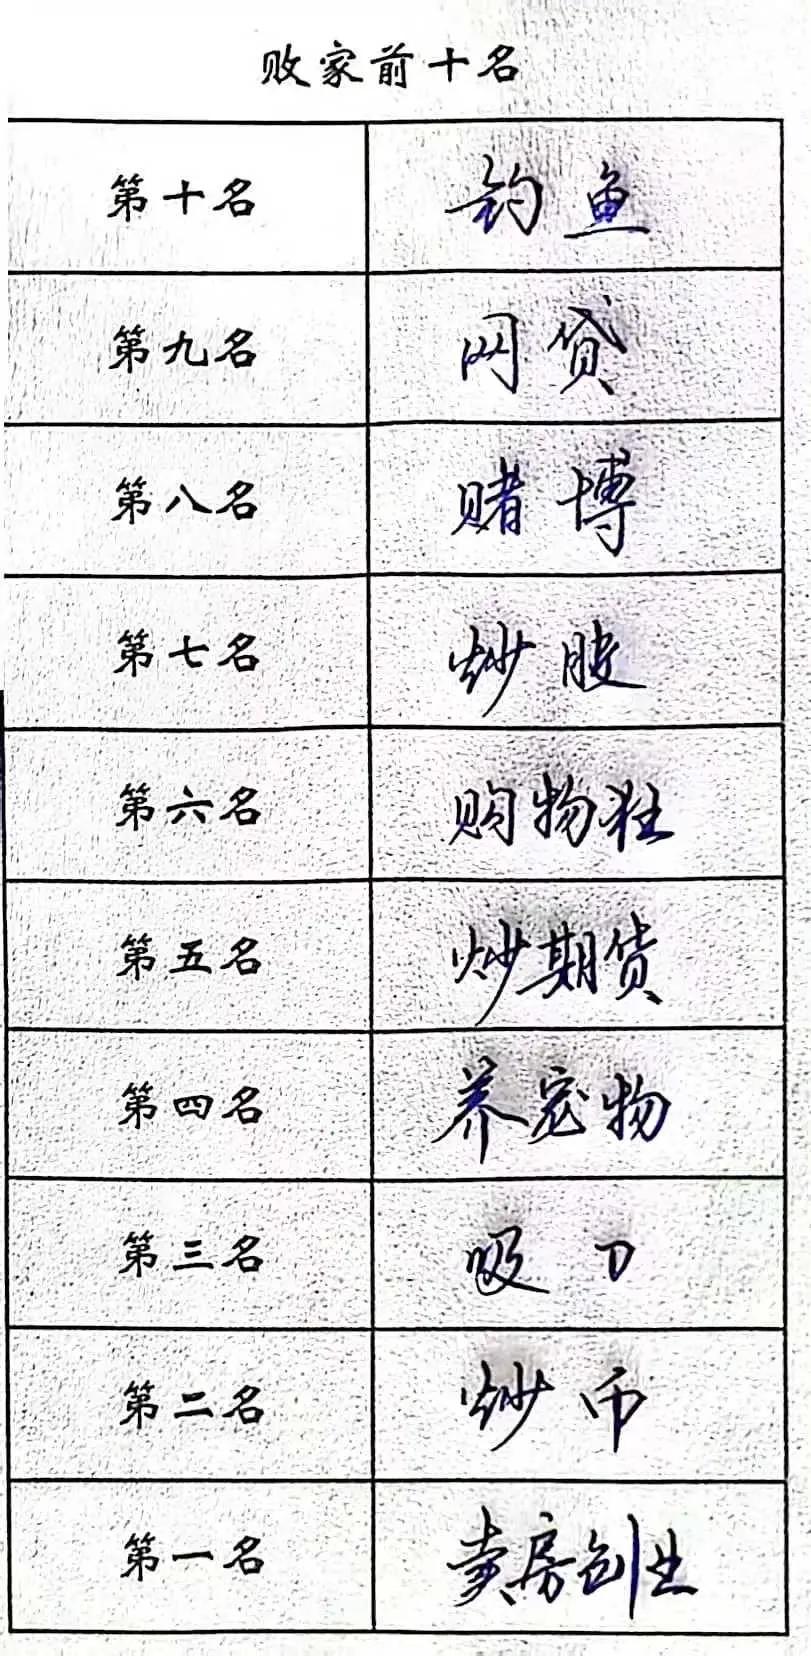 败家前十名
第十名 钓鱼
第九名 网贷
第八名 赌博
第七名 炒股
第六名 购物狂
第五名 炒期货
第四名 养宠物
第三名 吸刀
第二名 炒币
第一名 卖房创业